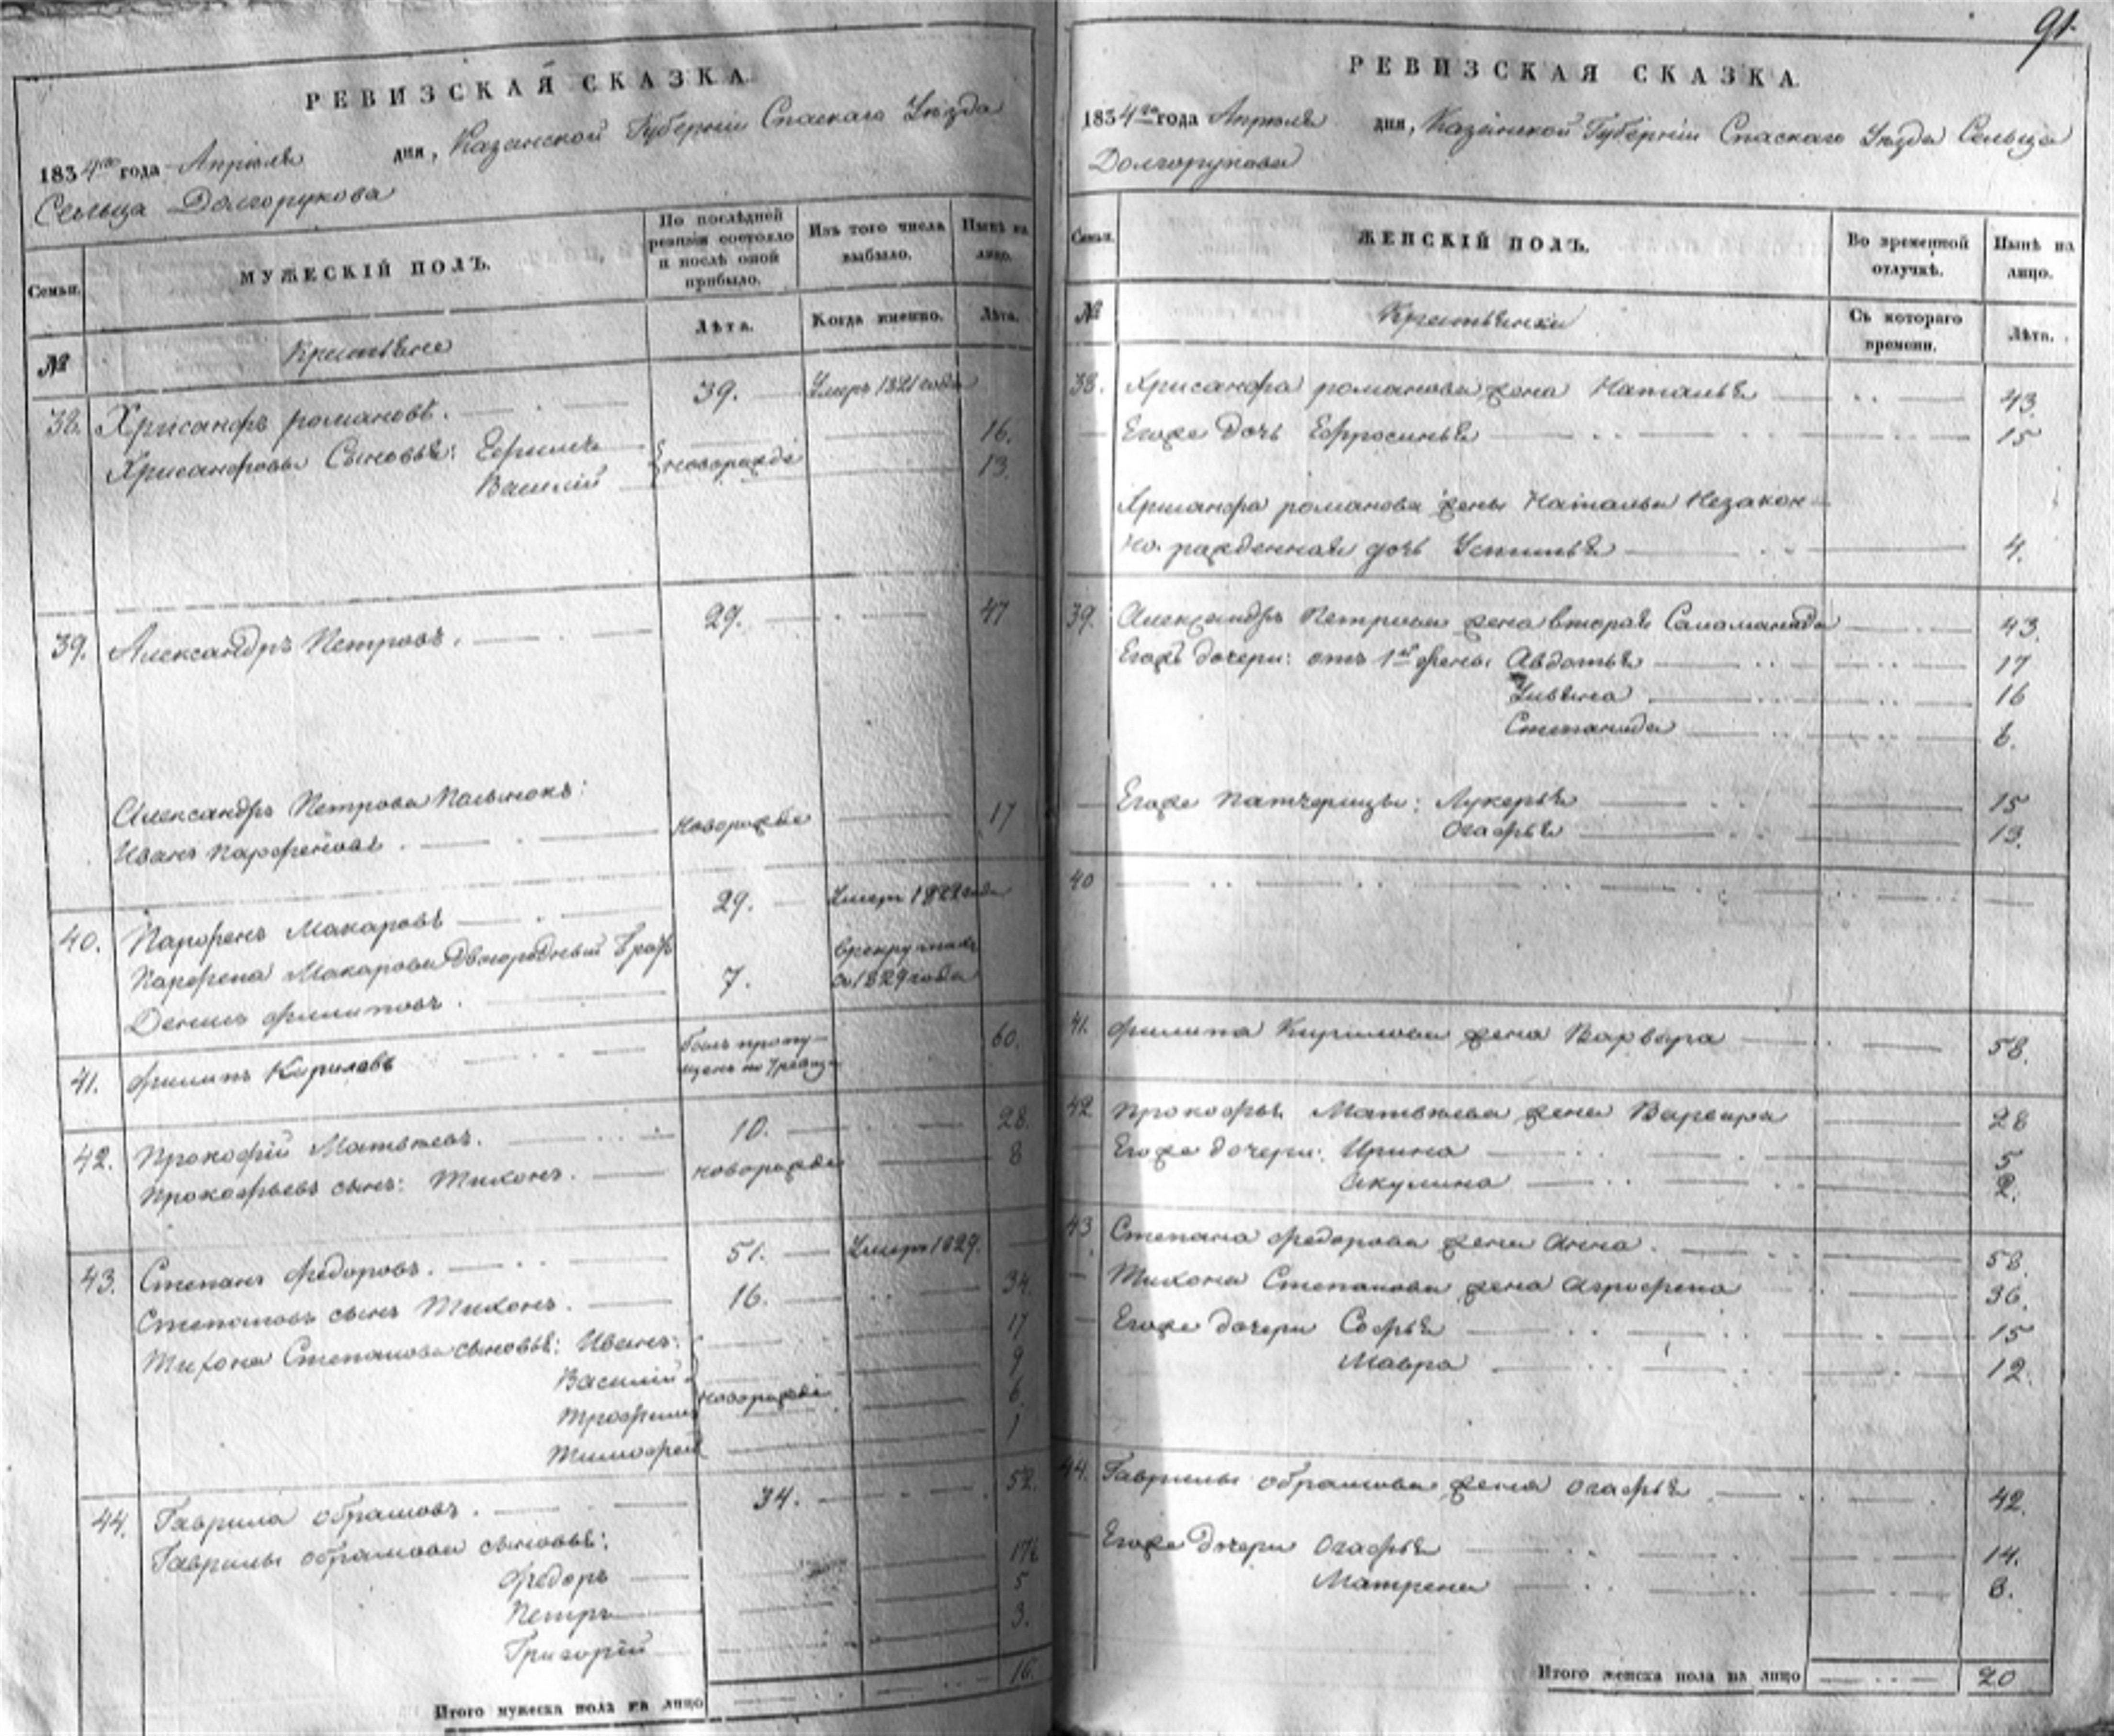 РЕВИЗСКАЯ СКАЗКА
1834го года Апреля дня, Казанской Губернiи Спаскаго Уезда
Сельца Долгорукова
Семьи.
МУЖЕСКIЙ ПОЛЪ.
По послѣдней ревизiи состояло и послѣ оной прибыло.
Изъ того числа выбыло.
Нынѣ на лицо.
№
Крестьяне
Лѣта.
Когда именно.
Лѣта.
38. Хрисанфъ романовъ. 39. Умеръ 1821 года
Хрисанфовы Сыновья: Ефимъ 16.
Василiй новорожде 13.
39. Александръ Петровъ. 29. 47
Александръ Петрова Пасынокъ:
Иванъ Парфеновъ. новорожде 17
40. Парфенъ Макаровъ 29. Умеръ 1822 года
Парфена Макарова Двоюродный братъ в рекруты
Денисъ филиповъ. 7. 1829 года
41. филипъ Кириловъ былъ пропущенъ по 7 ревизи 60.
42. Прокофiй Матвеевъ. 10. 28.
Прокофьевъ сынъ: Тихонъ. новорожде 8
43. Степанъ федоровъ. 51. Умеръ 1829.
Степановъ сынъ Тихонъ. 16. 34
Тихона Степанова сыновья: Иванъ 17
Василiй 9
Трофимъ новорожде 6
Тимофей 1
44. Гаврила обрамовъ. 34. 52.
Гаврилы обрамова сыновья:
федоръ 17
Петръ 5
Григорiй 3.
Итого мужеска пола на лицо 16.
91.
РЕВИЗСКАЯ СКАЗКА
1834го года Апреля дня, Казанской Губернiи Спаскаго Уезда Сельца
Долгорукова
Семьи.
ЖЕНСКIЙ ПОЛЪ.
Во временной отлучкѣ.
Нынѣ на лицо.
№
Крестьянки
Съ котораго времени.
Лѣта.
38. Хрисанфа романова жена Наталья 43.
Егоже Дочь Ефросинья 15
Хрисанфа романова жены Натальи Незакон-
но. рожденная дочь Устинья 4.
39. Александръ Петрова жена вторая Саламанида 43.
Егожъ дочери: отъ 1й жены Авдотья 17
Ульяна 16
Степанида 6.
Егоже Патчерицы: Лукерья 15
Огафья 13.
40
41. филипа Кирилова жена Варвара 58.
42 Прокофья Матвеева жена Варвара 28
Егоже дочери: Ирина 5
Акулина 2.
43 Степана федорова жена Анна. 58.
Тихона Степанова жена Агрофена 36.
Егоже дочери Софья 15
Мавра 12.
44. Гаврилы обрамова жена огафья 42.
Егоже Дочери Огафья 14.
Матрена 8.
Итого женска пола на лицо 20